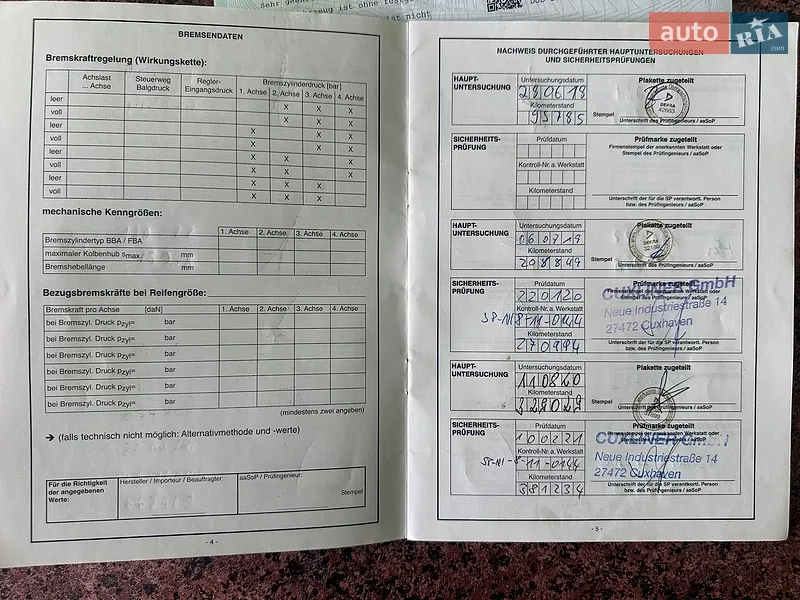 BREMSENDATEN
Bremskraftregelung (Wirkungskette):
Achslast ... Achse
Steuerweg Balgdruck
Regler- Eingangsdruck
Bremszylinderdruck [bar]
1. Achse 2. Achse 3. Achse 4. Achse
leer X X X
voll X X X
leer X X X
voll X X X
leer X X X
voll X X X
leer X X X
voll X X X
mechanische Kenngrößen:
1. Achse 2. Achse 3. Achse 4. Achse
Bremszylindertyp BBA / FBA
maximaler Kolbenhub smax. mm
Bremshebellänge mm
Bezugsbremskräfte bei Reifengröße:
Bremskraft pro Achse [daN] 1. Achse 2. Achse 3. Achse 4. Achse
bei Bremszyl. Druck pzyl= bar
bei Bremszyl. Druck pzyl= bar
bei Bremszyl. Druck pzyl= bar
bei Bremszyl. Druck pzyl= bar
bei Bremszyl. Druck pzyl= bar
bei Bremszyl. Druck pzyl= bar
(mindestens zwei angeben)
➔ (falls technisch nicht möglich: Alternativmethode und -werte)
Für die Richtigkeit der angegebenen Werte:
Hersteller / Importeur / Beauftragter:
aaSoP / Prüfingenieur:
Stempel
- 4 -
ist nicht
auto RIA .com
NACHWEIS DURCHGEFÜHRTER HAUPTUNTERSUCHUNGEN
UND SICHERHEITSPRÜFUNGEN
HAUPT-
UNTERSUCHUNG
Untersuchungsdatum
280618
Kilometerstand
195785
Plakette zugeteilt
DEKRA
Stempel
Unterschrift des Prüfingenieurs / aaSoP
SICHERHEITS-
PRÜFUNG
Prüfdatum
Kontroll-Nr. a. Werkstatt
Kilometerstand
Prüfmarke zugeteilt
Firmenstempel der anerkannten Werkstatt oder
Stempel des Prüfingenieurs / aaSoP
Unterschrift der für die SP verantwortl. Person
bzw. des Prüfingenieurs / aaSoP
HAUPT-
UNTERSUCHUNG
Untersuchungsdatum
060719
Kilometerstand
Plakette zugeteilt
DEKRA
Stempel
Unterschrift des Prüfingenieurs / aaSoP
SICHERHEITS-
PRÜFUNG
Prüfdatum
220120
Kontroll-Nr. a. Werkstatt
Kilometerstand
270994
Prüfmarke zugeteilt
CUXLINER GmbH
Neue Industriestraße 14
27472 Cuxhaven
Unterschrift der für die SP verantwortl. Person
bzw. des Prüfingenieurs / aaSoP
HAUPT-
UNTERSUCHUNG
Untersuchungsdatum
110820
Kilometerstand
Plakette zugeteilt
Stempel
SICHERHEITS-
PRÜFUNG
Prüfdatum
100221
Kontroll-Nr. a. Werkstatt
Kilometerstand
381234
Prüfmarke zugeteilt
CUXLINER GmbH
Neue Industriestraße 14
27472 Cuxhaven
Unterschrift der für die SP verantwortl. Person
bzw. des Prüfingenieurs / aaSoP
- 5 -